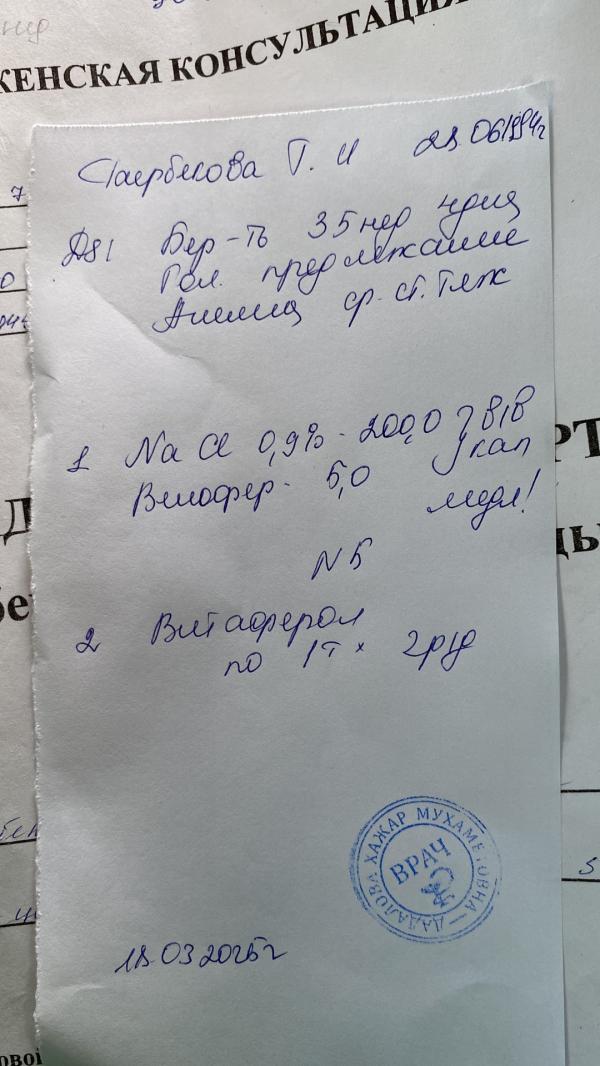 ЖЕНСКАЯ КОНСУЛЬТАЦИЯ
Таирбекова Г. И 28.06.1994г
Ds: Бер-ть 35 нед
Гол. предлежание
Анемия ср. ст. тяж
1 Na Cl 0,9% - 200,0 } в/в
Велофер - 5,0 кап
медл!
N 5
2 Витаферол
по 1т × 2р/д
ДАДАЛОВА ХАЖАР МУХАМЕТОВНА
ВРАЧ
18.03.2025г